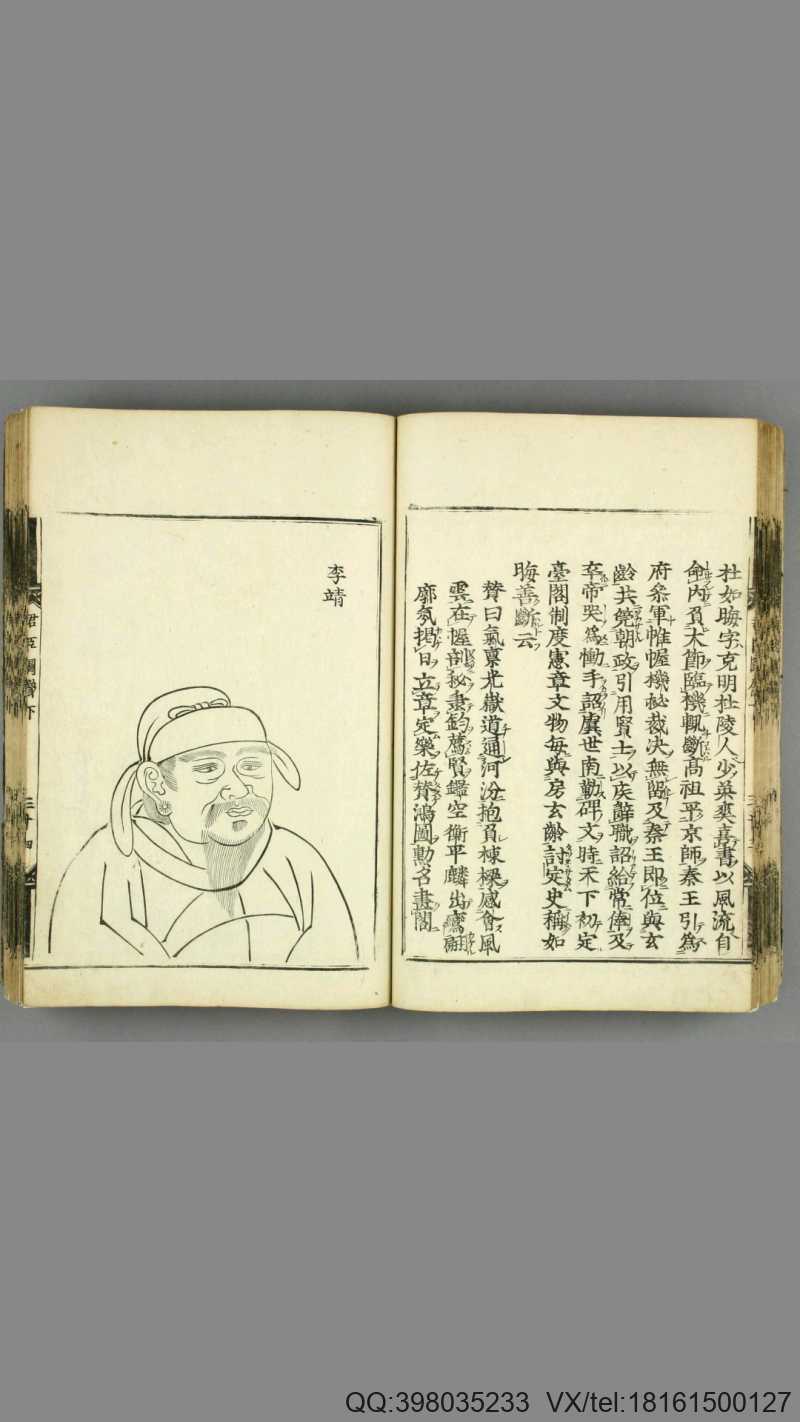 杜如晦字克明杜陵人少英爽喜書以風流自
命內負大節臨機輒斷高祖平京師秦王引為
府參軍帷幄機祕裁決無留及秦王即位與玄
齡共筦朝政引用賢士以疾辭職詔給常俸及
卒帝哭為慟手詔虞世南勒碑文時天下初定
臺閣制度憲章文物每與房玄齡討定史稱如
晦善斷云
贊曰氣稟光嶽道通河汾抱負棟樑感會風
雲在握剖祕畫鈞薦賢鑑空衡平麟出鷹
廓氛揭日立章定樂佐贊鴻圖勳名畫閣
李靖
君臣圖贊下
三十四
QQ:398035233 VX/tel:18161500127